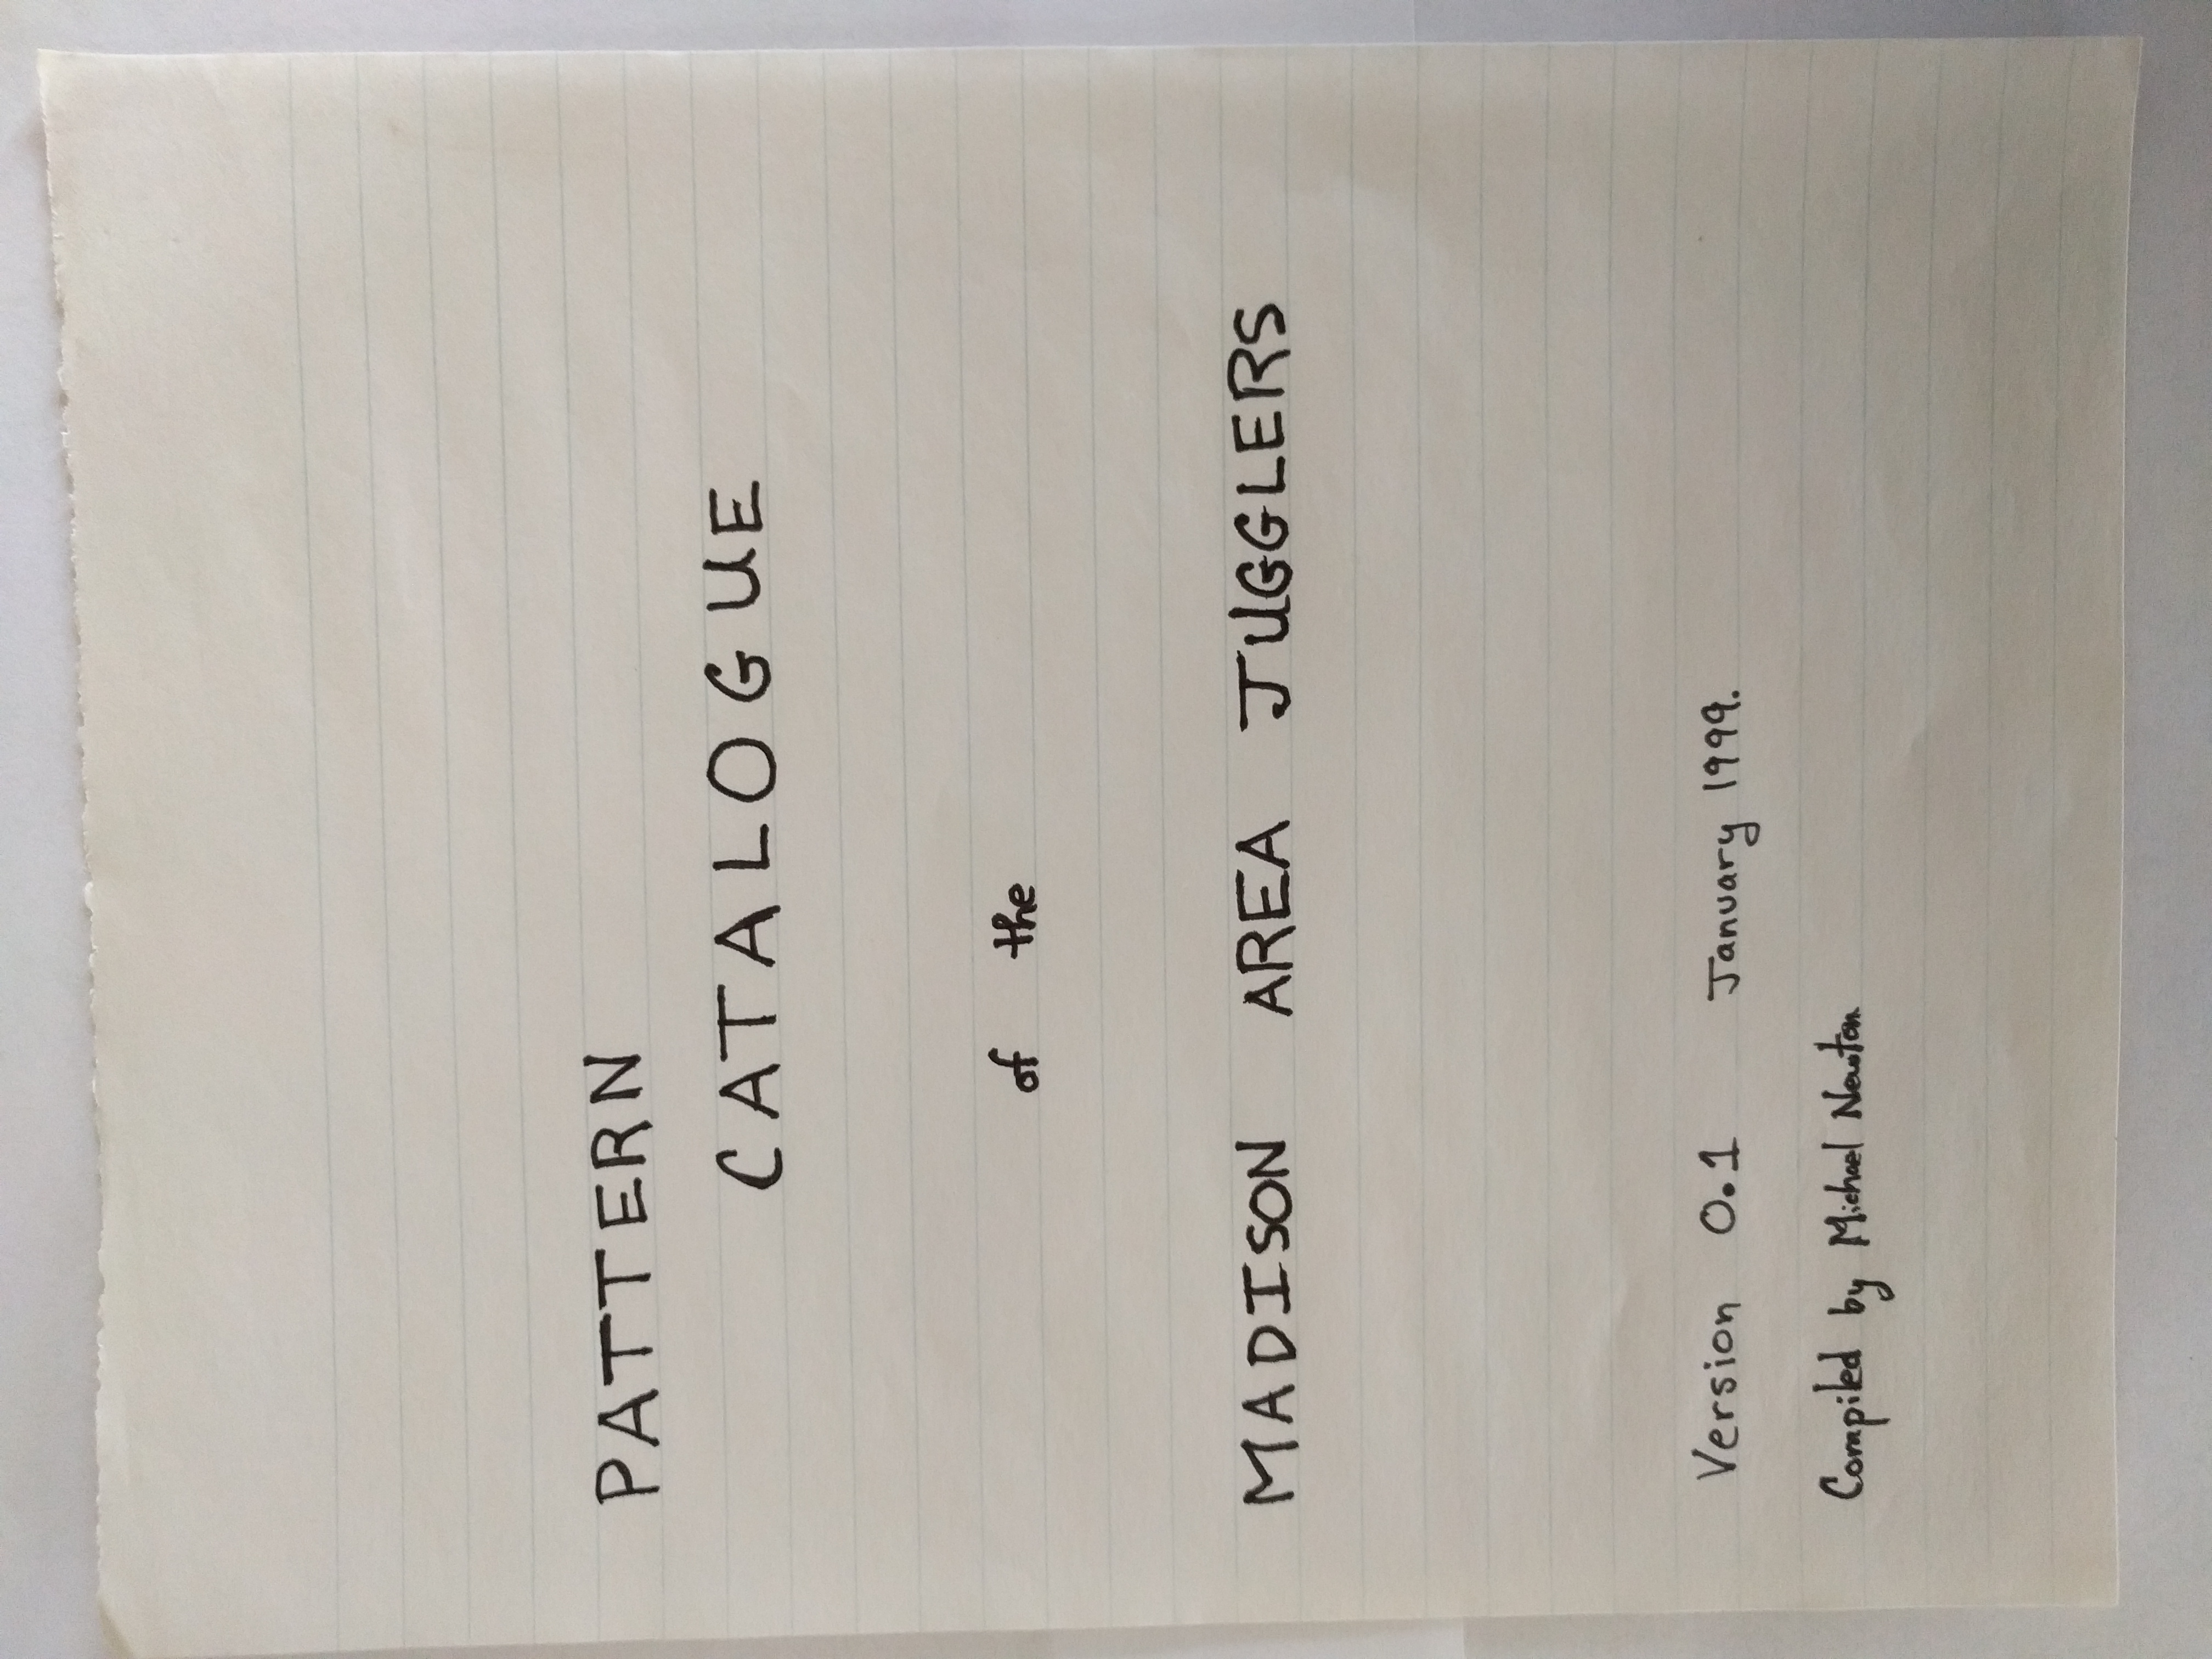 PATTERN
CATALOGUE
of the
MADISON AREA JUGGLERS
Version 0.1 January 1999.
Compiled by Michael Newton